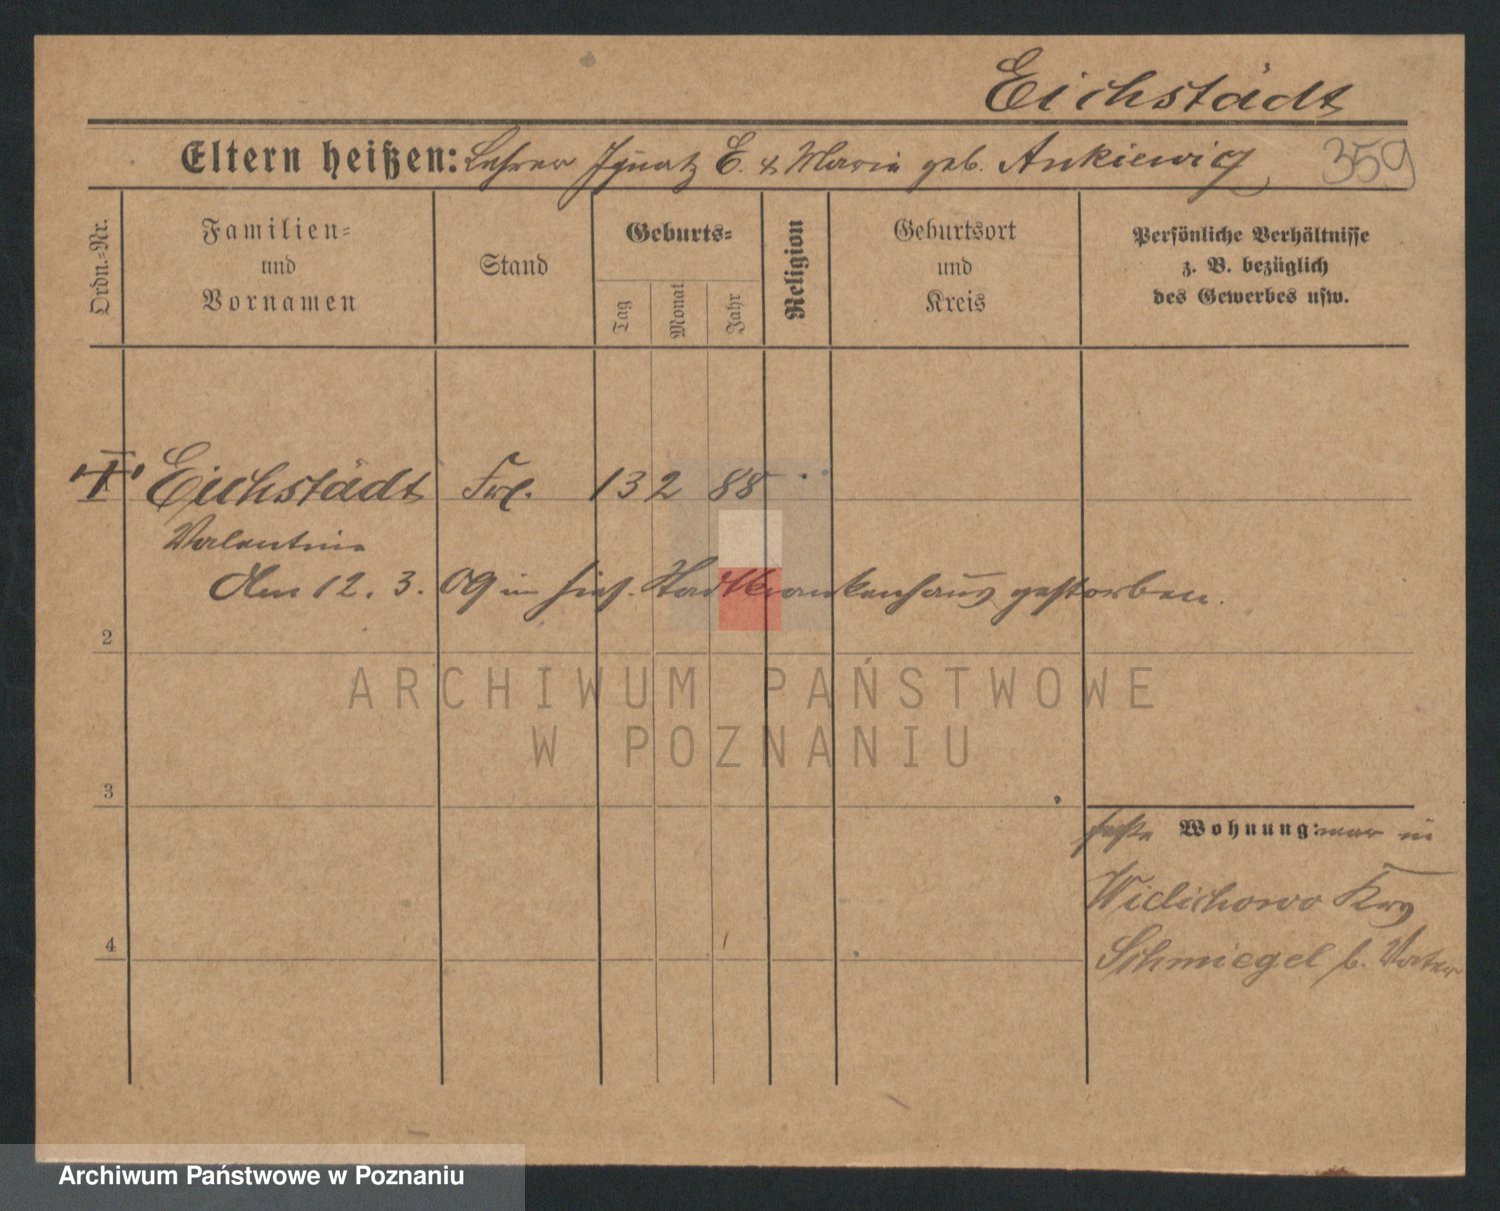 Eichstädt
Eltern heißen: Lehrer Ignatz E. & Maria geb. Ankiewicz
359
Ordn.-Nr.
Familien-
und
Vornamen
Stand
Geburts-
Tag
Monat
Jahr
Religion
Geburtsort
und
Kreis
Persönliche Verhältnisse
z. B. bezüglich
des Gewerbes usw.
Eichstädt Frl. 13 2 88
Valentine
Am 12. 3. 09 im hies. Stadtkrankenhaus gestorben.
2
ARCHIWUM PAŃSTWOWE
W POZNANIU
3
feste Wohnung: war in
Widichowo Krs
4
Schmiegel b. Vater
Archiwum Państwowe w Poznaniu